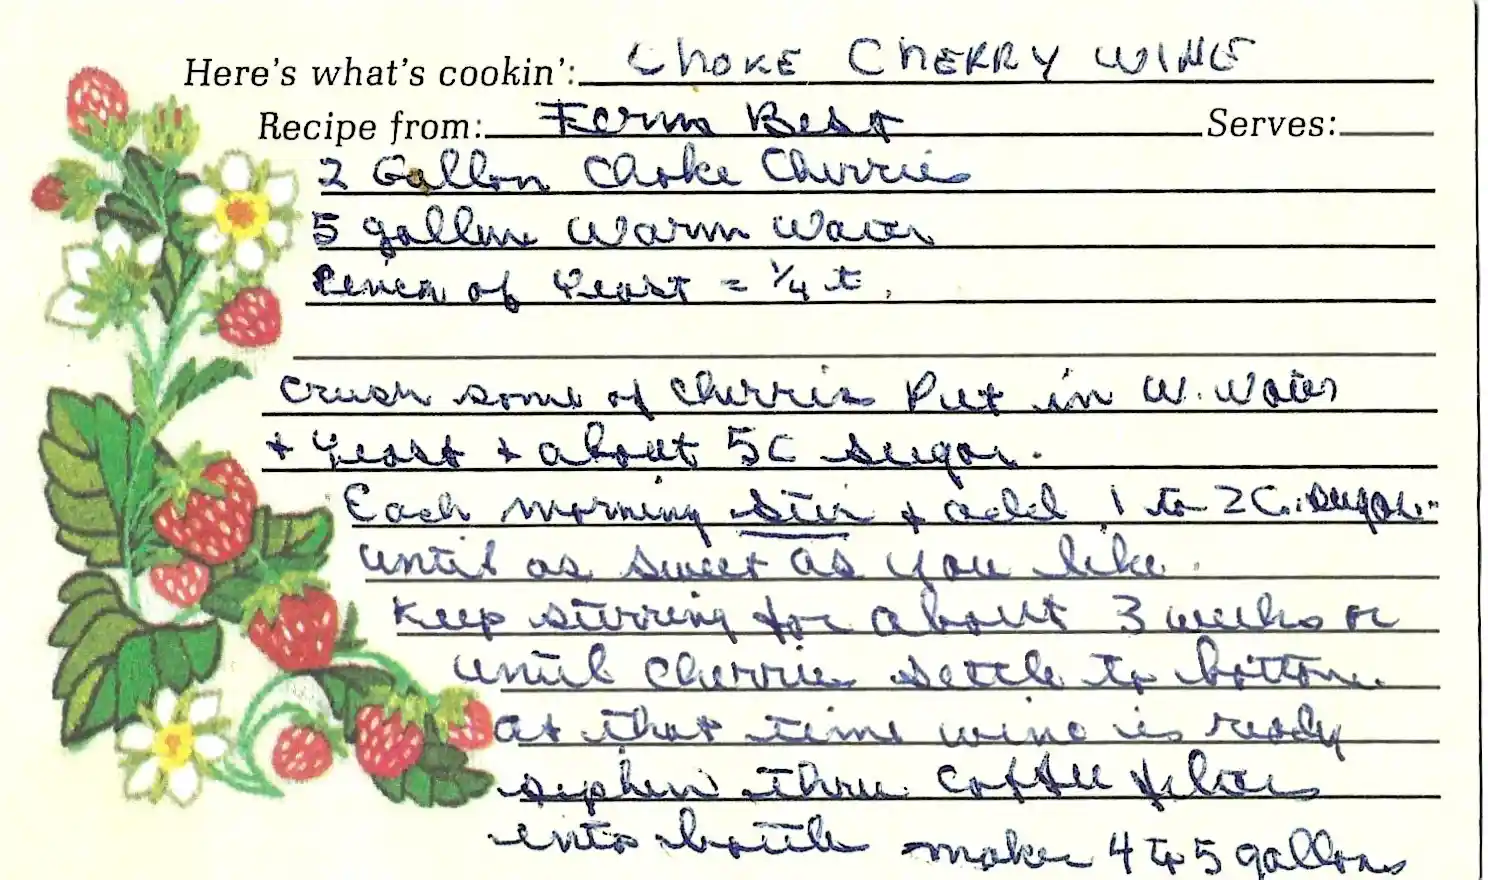 Here's what's cookin': CHOKE CHERRY WINE
Recipe from: Ferm Best Serves:
2 Gallon Choke Cherries
5 gallon Warm Water
Pinch of Yeast = 1/4 t.
Crush some of Cherries Put in W. Water
+ Yeast + about 5C sugar.
Each morning stir + add 1 to 2 C. sugar..
until as sweet as you like.
Keep stirring for about 3 weeks or
until Cherries settle to bottom.
At that time wine is ready
siphen thru coffee filter
into bottle makes 4 to 5 gallons